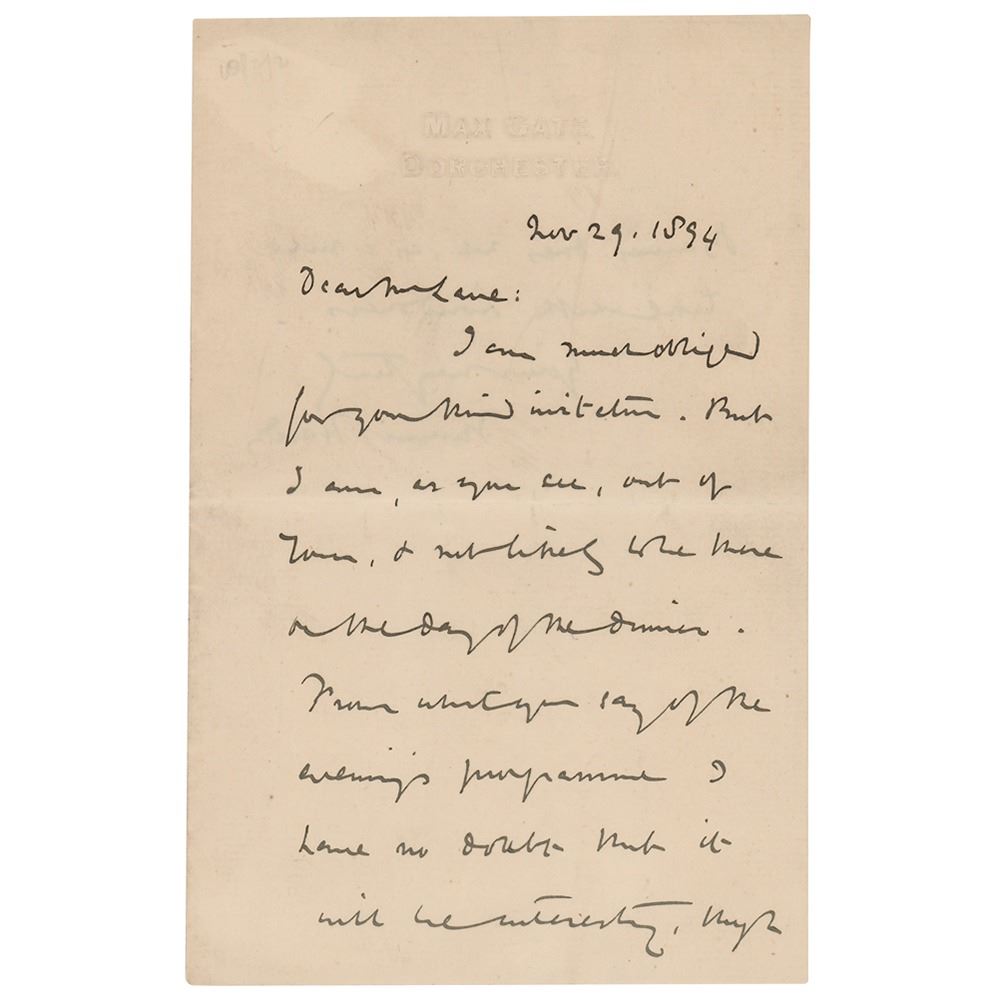 MAX GATE
DORCHESTER.
Nov 29. 1894
Dear Mr Lane:
I am much obliged
for your kind invitation. But
I am, as you see, out of
Town, & not likely to be there
on the day of the dinner.
From what you say of the
evening's programme I
have no doubt that it
will be interesting, though